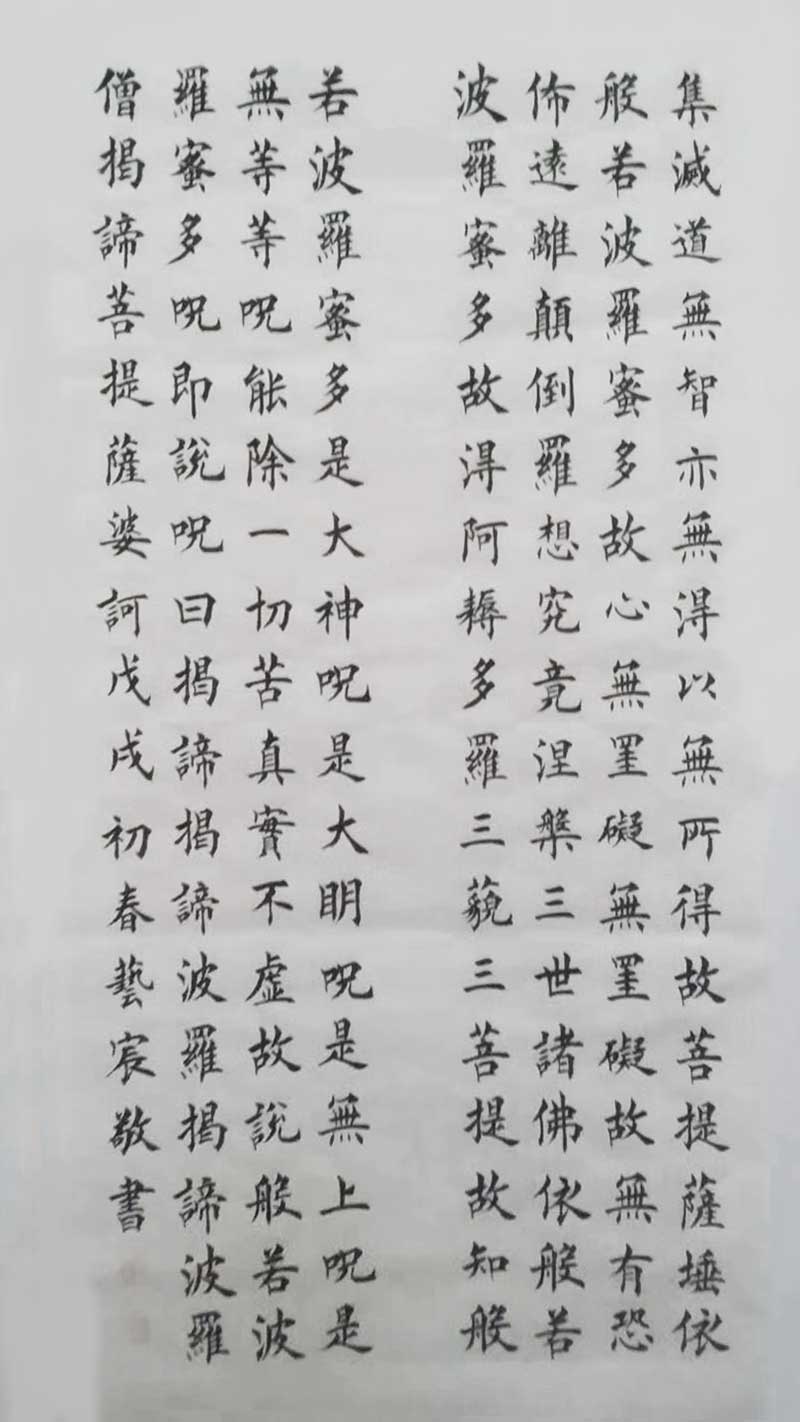 集滅道無智亦無得以無所得故菩提薩埵依
般若波羅蜜多故心無罣礙無罣礙故無有恐
佈遠離顛倒羅想究竟涅槃三世諸佛依般若
波羅蜜多故得阿耨多羅三藐三菩提故知般
若波羅蜜多是大神呪是大明呪是無上呪是
無等等呪能除一切苦真實不虛故說般若波
羅蜜多呪即說呪曰揭諦揭諦波羅揭諦波羅
僧揭諦菩提薩婆訶戊戌初春藝宸敬書